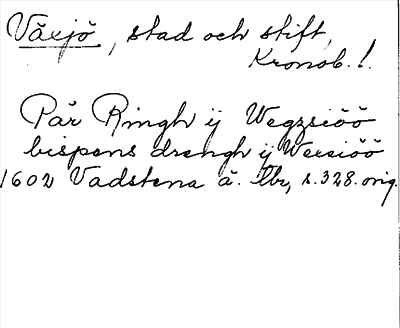 Växjö, stad och stift,
Kronob. l.
Pär Ringh ij Wegzsiöö
bispens drengh ij Wexsiöö
1602 Vadstena ä. Tb, s. 328. orig.